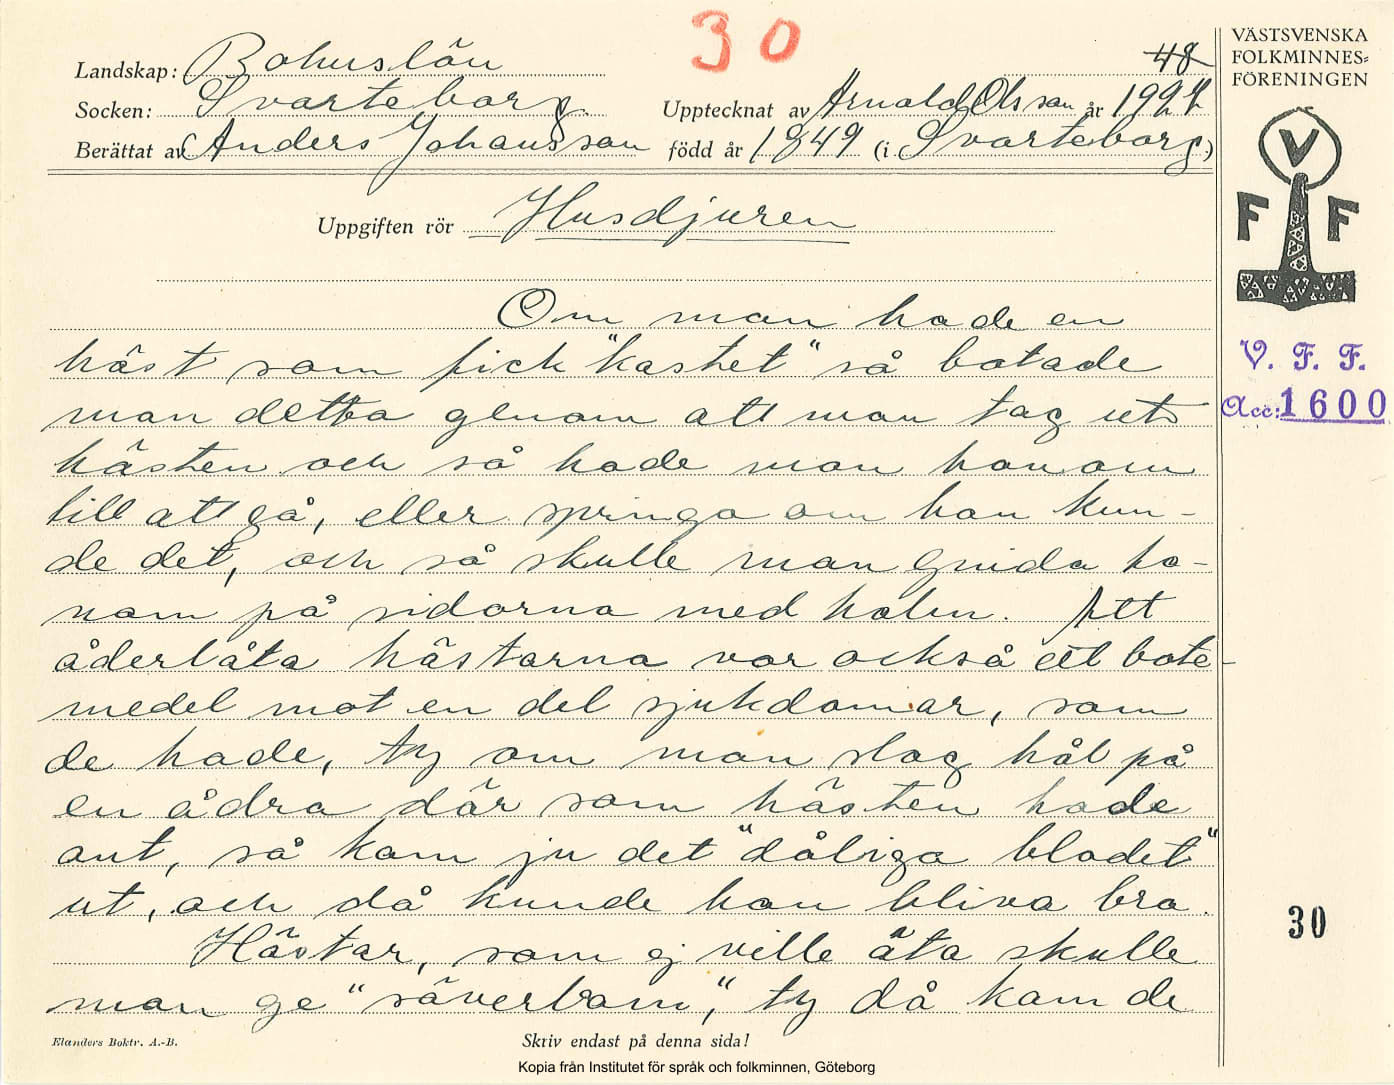 30
48
VÄSTSVENSKA
FOLKMINNES=
FÖRENINGEN
Landskap: Bohuslän
Socken: Svarteborg. Upptecknat av Arnold Olsson år 1927
Berättat av Anders Johansson född år 1849 (i Svarteborg)
V
F F
Uppgiften rör Husdjuren
V. F. F.
Acc: 1600
Om man hade en
häst som fick "kashet" så botade
man detta genom att man tog ut
hästen och så hade man honom
till att gå, eller springa om han kun-
de det, och så skulle man gnida ho-
nom på sidorna med halm. Att
åderlåta hästarna var också ett bote-
medel mot en del sjukdomar, som
de hade, ty om man slog hål på
en ådra där som hästen hade
ont, så kom ju det "dåliga blodet"
ut, och då kunde han bliva bra.
Hästar, som ej ville äta skulle
man ge "säverbom", ty då kom de
30
Elanders Boktr. A.-B.
Skriv endast på denna sida!
Kopia från Institutet för språk och folkminnen, Göteborg